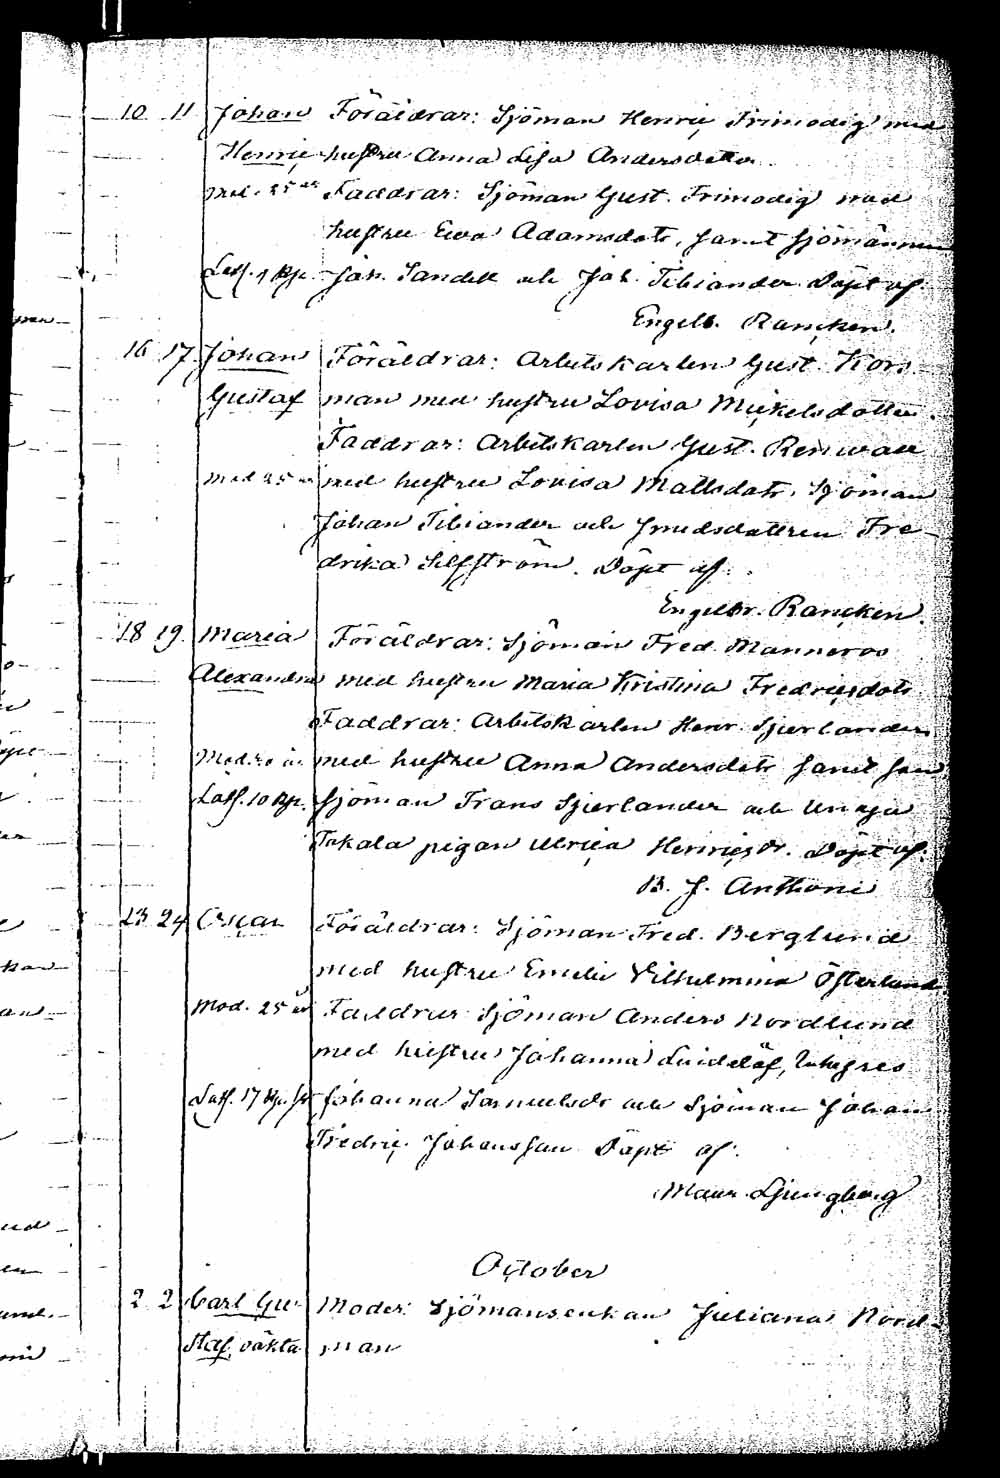 10 11 Johan Föräldrar: Sjöman Henric Frimodig med
Henric hustru Anna Lisa Andersdotter
mod. 25 år Faddrar: Sjöman Gust. Frimodig med
hustru Ewa Adamsdotr, samt sjömännen
Joh. Sandell och Joh. Tibiander. Döpt af
Engelb. Rancken.
16 17 Johan Föräldrar: Arbetskarlen Gust. Kors
Gustaf man med hustru Lovisa Mickelsdotter.
Faddrar: Arbetskarlen Gust. Renwall
mod 25 år med hustru Lovisa Mattsdotr, Sjöman
Johan Tibiander och smedsdottren Fre-
drika Silfström. Döpt af
Engelbr. Rancken.
18 19. Maria Föräldrar: Sjöman Fred. Manneros
Alexandra med hustru Maria Kristina Fredricsdotr
Faddrar: Arbetskarlen Henr. Sjerlander
med hustru Anna Andersdotr samt
Latf. 10 Kp. Sjöman Frans Sjerlander och
Takala pigan Ulrica Henricsdr. Döpt af:
B. J. Anthoni
23 24 Oscar Föräldrar: Sjöman Fred. Berglund
med hustru Emelie Vilhelmina Österlund.
Mod. 25 år Faddrar Sjöman Anders Nordlund
med hustru Johanna
Johanna Samuelsdr och Sjöman Johan
Fredric Johansson Döpt af
Maur. Ljungberg
October
2 2 Carl Gu- Moder: Sjömansenkan Juliana Nord-
staf, oäkta man